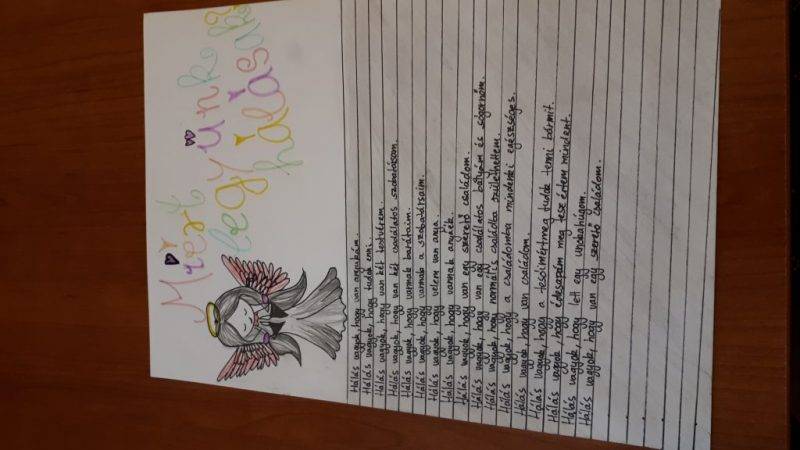 Miért
legyünk
hálásak
Hálás vagyok, hogy van anyukám.
Hálás vagyok, hogy tudok enni.
Hálás vagyok, hogy van két testvérem.
Hálás vagyok, hogy van két csodálatos szobatársam.
Hálás vagyok, hogy vannak barátaim.
Hálás vagyok, hogy vannak a szobatársaim.
Hálás vagyok, hogy velem van anya.
Hálás vagyok, hogy vannak
Hálás vagyok, hogy van egy szerető családom.
Hálás vagyok, hogy van egy csodálatos bátyám és sógornőm.
Hálás vagyok, hogy normális családba születhettem.
Hálás vagyok, hogy a családomba mindenki egészséges.
Hálás vagyok, hogy van családom.
Hálás vagyok, hogy a tesóimért meg tudok tenni bármit.
Hálás vagyok, hogy édesapám meg tesz értem mindent.
Hálás vagyok, hogy lett egy unokahúgom.
Hálás vagyok, hogy van egy szerető családom.